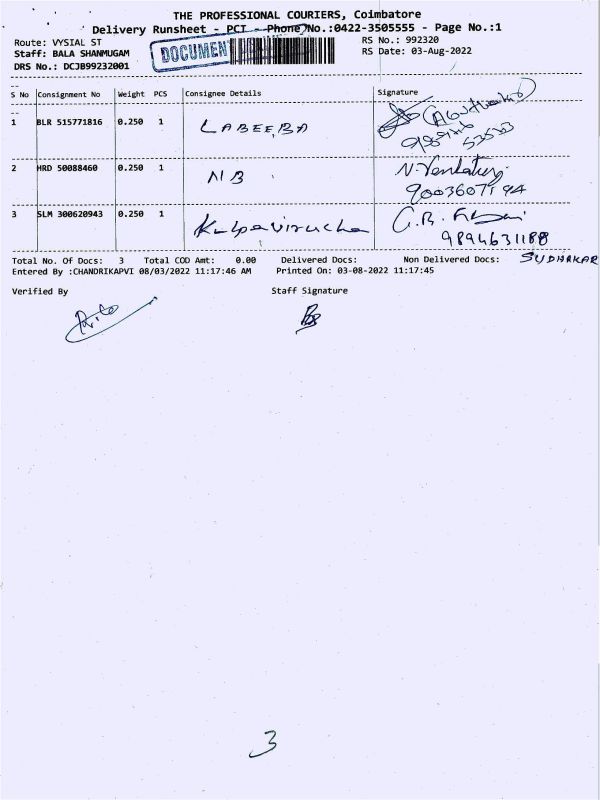 THE PROFESSIONAL COURIERS, Coimbatore
Delivery Runsheet - PCT - Phone No.:0422-3505555 - Page No.:1
Route: VYSIAL ST RS No.: 992320
Staff: BALA SHANMUGAM DOCUMEN RS Date: 03-Aug-2022
DRS No.: DCJB99232001
S No Consignment No Weight PCS Consignee Details Signature
1 BLR 515771816 0.250 1 LABEEBA
2 HRD 50088460 0.250 1 NB N.
9003607194
3 SLM 300620943 0.250 1 Kalpavirucha G.B.
9894631188
Total No. Of Docs: 3 Total COD Amt: 0.00 Delivered Docs: Non Delivered Docs: SUDHAKAR
Entered By :CHANDRIKAPVI 08/03/2022 11:17:46 AM Printed On: 03-08-2022 11:17:45
Verified By Staff Signature
3